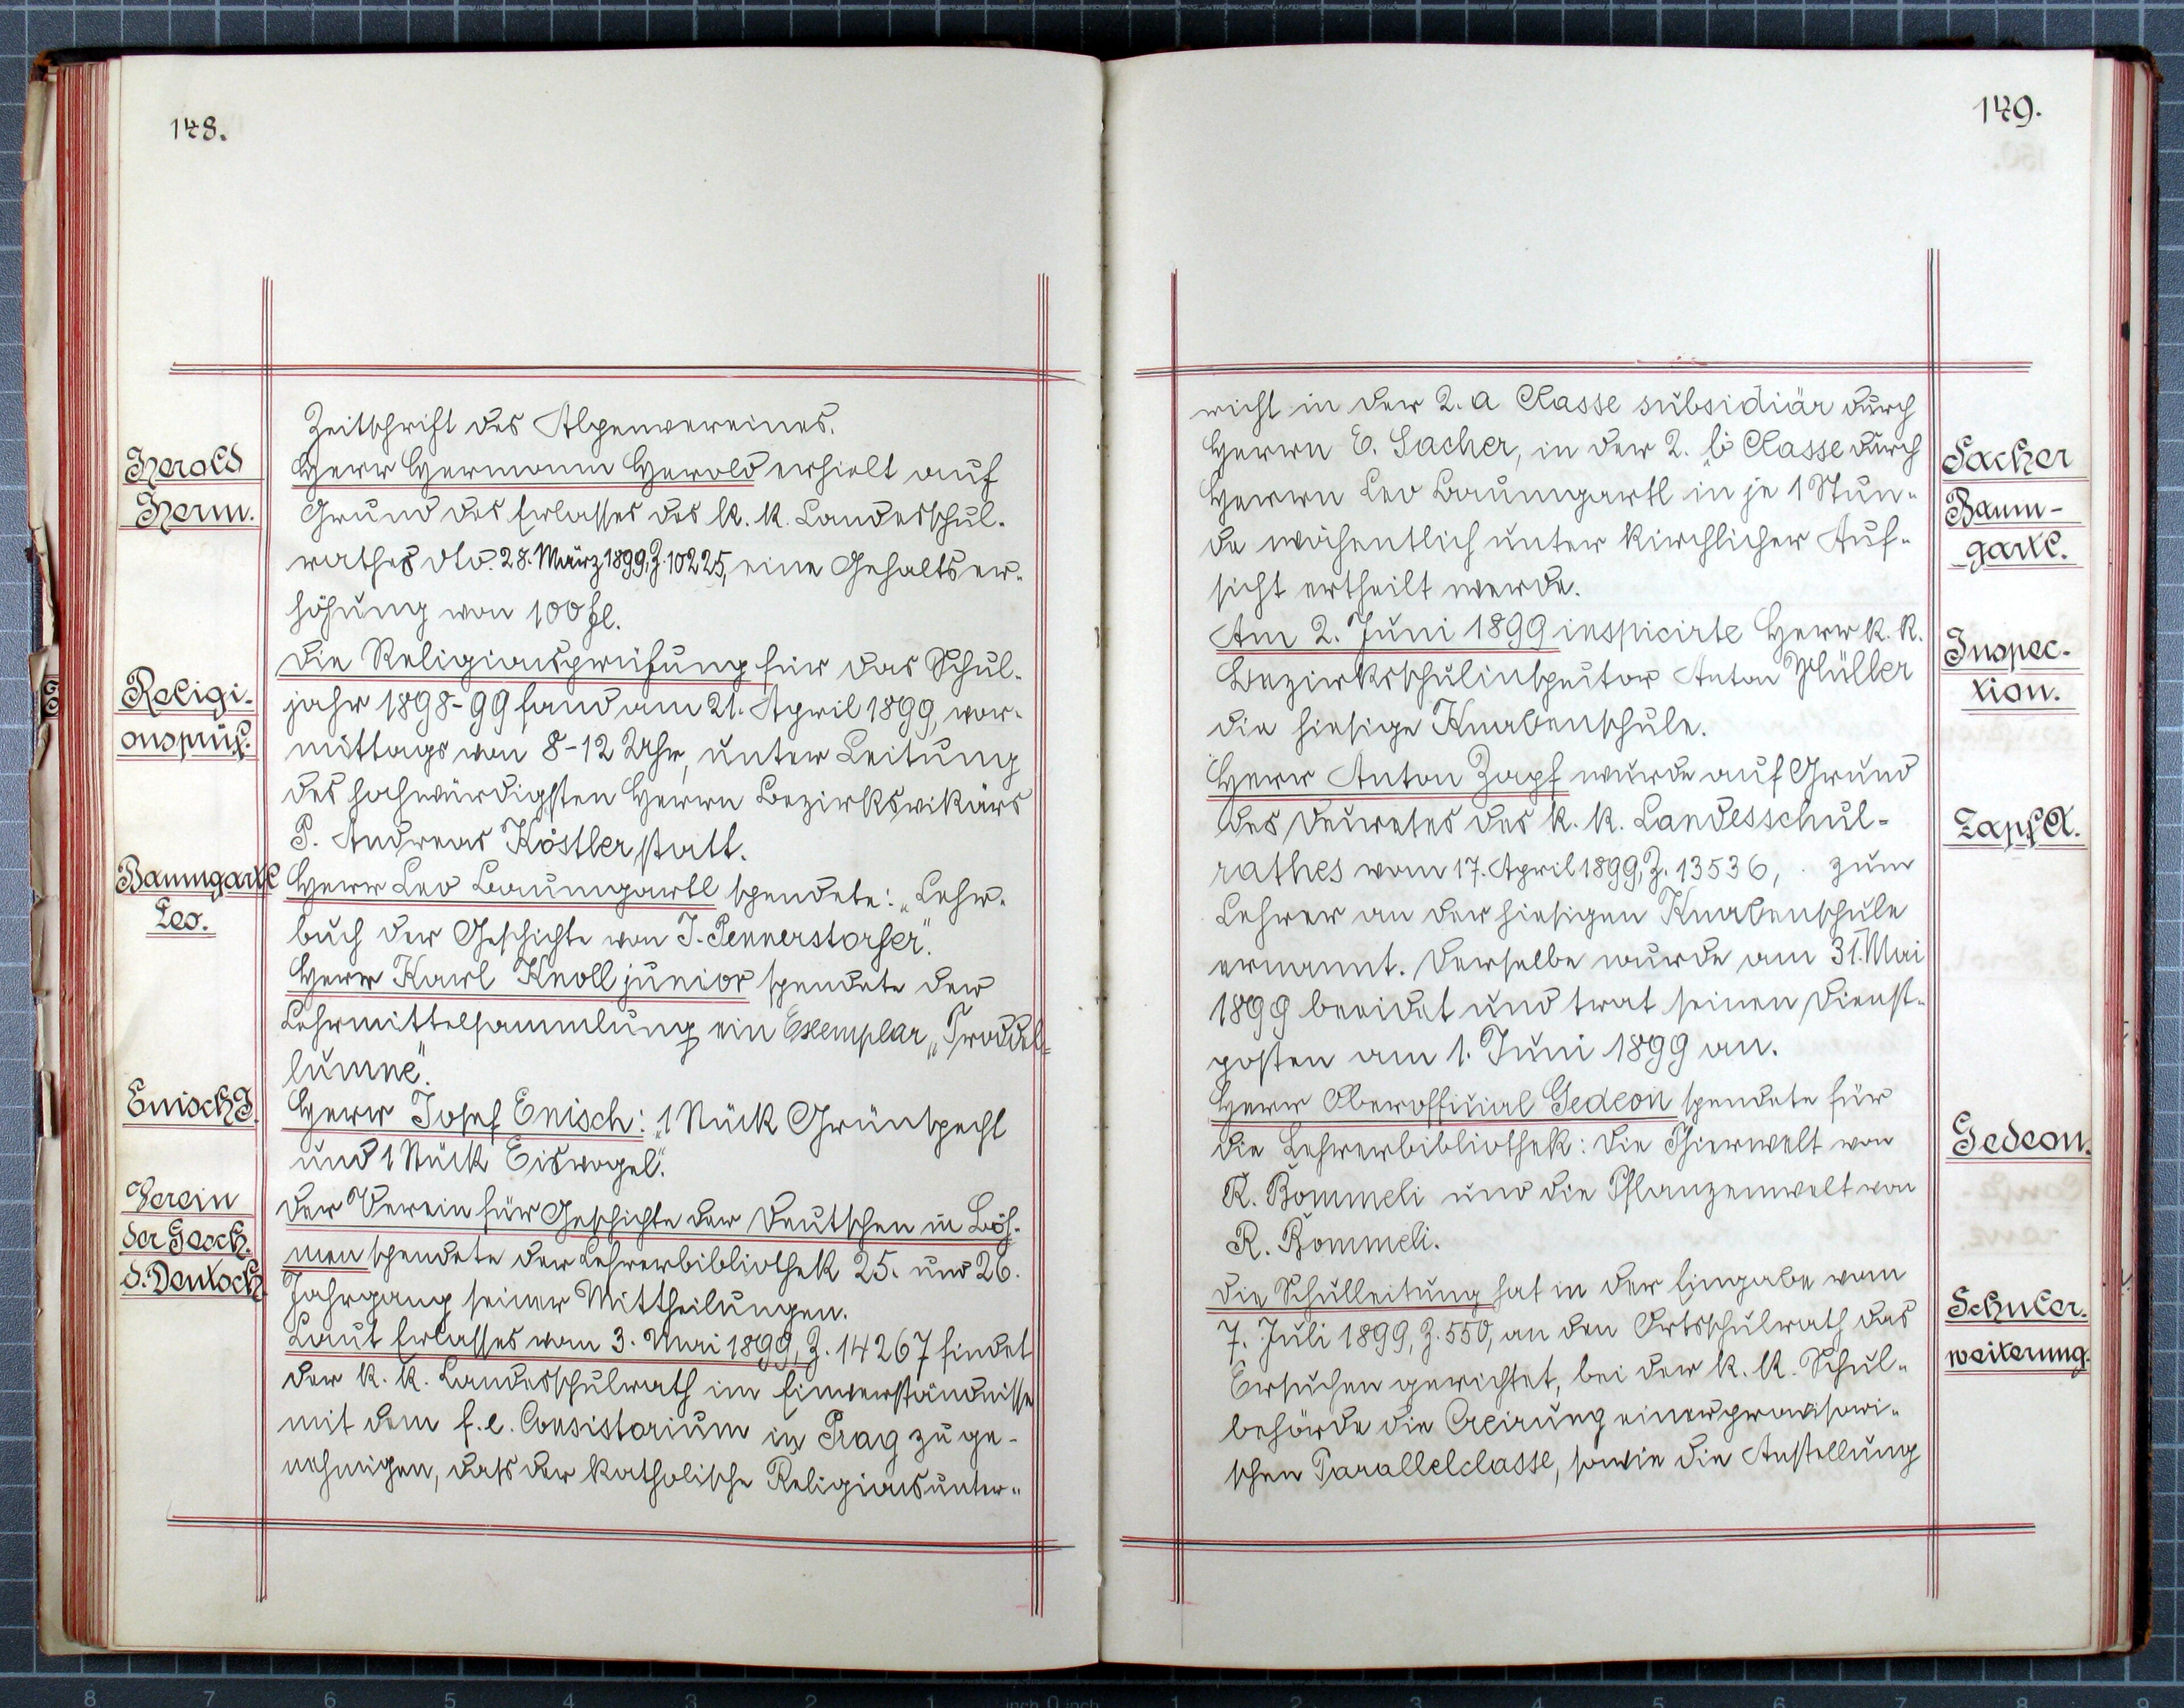 148.
Zeitschrift des Alpenvereines.
Herold
Herm.
Herr Hermann Herold erhielt auf
Grund des Erlasses des k. k. Landesschul-
rathes dto. 28. März 1899, Z. 10225, eine Gehaltser-
höhung von 100 fl.
Religi-
onsprüf.
Die Religionsprüfung für das Schul-
jahr 1898-99 fand am 21. April 1899, vor-
mittags von 8-12 Uhr, unter Leitung
des hochwürdigsten Herrn Bezirksvikärs
P. Andreas Köstler statt.
Baumgartl
Leo.
Herr Leo Baumgartl spendete: „Lehr-
buch der Geschichte von J. Pennerstorfer".
Herr Karl Knoll junior spendete der
Lehrmittelsammlung ein Exemplar „Troddel-
lumne".
Enisch J.
Herr Josef Enisch: „1 Stück Grünspecht
und 1 Stück Eisvogel".
Verein
der Gesch.
d. Deutsch.
Der Verein für Geschichte der Deutschen in Böh-
men spendete der Lehrerbibliothek 25. und 26.
Jahrgang seiner Mittheilungen.
Laut Erlasses vom 3. Mai 1899, Z. 14267 findet
der k. k. Landesschulrath im Einverständnisse
mit dem f. e. Consistorium in Prag zu ge-
nehmigen, dass der katholische Religionsunter-
149.
richt in der 2. a Classe subsidiär durch
Herrn E. Sacher, in der 2. b Classe durch
Herrn Leo Baumgartl in je 1 Stun-
de wöchentlich unter kirchlicher Auf-
sicht ertheilt werde.
Sacher
Baum-
gartl.
Am 2. Juni 1899 inspicirte Herr k. k.
Bezirksschulinspector Anton Hüller
die hiesige Knabenschule.
Inspec-
tion.
Herr Anton Zapf wurde auf Grund
des Decretes des k. k. Landesschul-
rathes vom 17. April 1899, Z. 13536, zum
Lehrer an der hiesigen Knabenschule
ernannt. Derselbe wurde am 31. Mai
1899 beeidet und trat seinen Dienst-
posten am 1. Juni 1899 an.
Zapf A.
Herr Oberofficial Gedeon spendete für
die Lehrerbibliothek: Die Thierwelt von
R. Bommeli und die Pflanzenwelt von
R. Bommeli.
Gedeon.
Die Schulleitung hat in der Eingabe vom
7. Juli 1899, Z. 550, an den Ortsschulrath das
Ersuchen gerichtet, bei der k. k. Schul-
behörde die Creirung einer provisori-
schen Parallelclasse, sowie die Anstellung
Schuler-
weiterung.
8 7 6 5 4 3 2 1 inch 0 inch 1 2 3 4 5 6 7 8 9